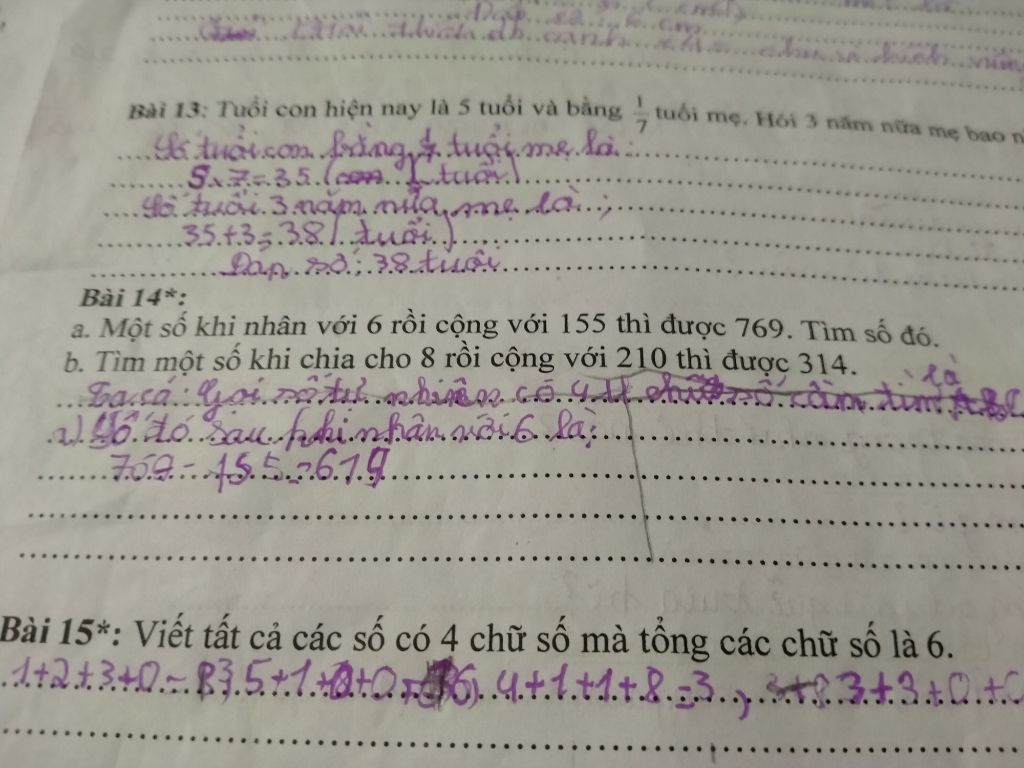 Bài 13: Tuổi con hiện nay là 5 tuổi và bằng 1/7 tuổi mẹ. Hỏi 3 năm nữa mẹ bao n
Số tuổi con bằng 1/7 tuổi mẹ là:
5 x 7 = 35 (tuổi)
Số tuổi 3 năm nữa mẹ là:
35+3=38 (tuổi)
Đáp số: 38 tuổi
Bài 14*:
a. Một số khi nhân với 6 rồi cộng với 155 thì được 769. Tìm số đó.
b. Tìm một số khi chia cho 8 rồi cộng với 210 thì được 314.
Ta có: Gọi số tự nhiên có 4 chữ số cần tìm là
a) Số đó sau khi nhân với 6 là:
769 - 155 = 619
Bài 15*: Viết tất cả các số có 4 chữ số mà tổng các chữ số là 6.
1+2+3+0 5+1+0+0 4+1+1+8=3, 3+3+0+0